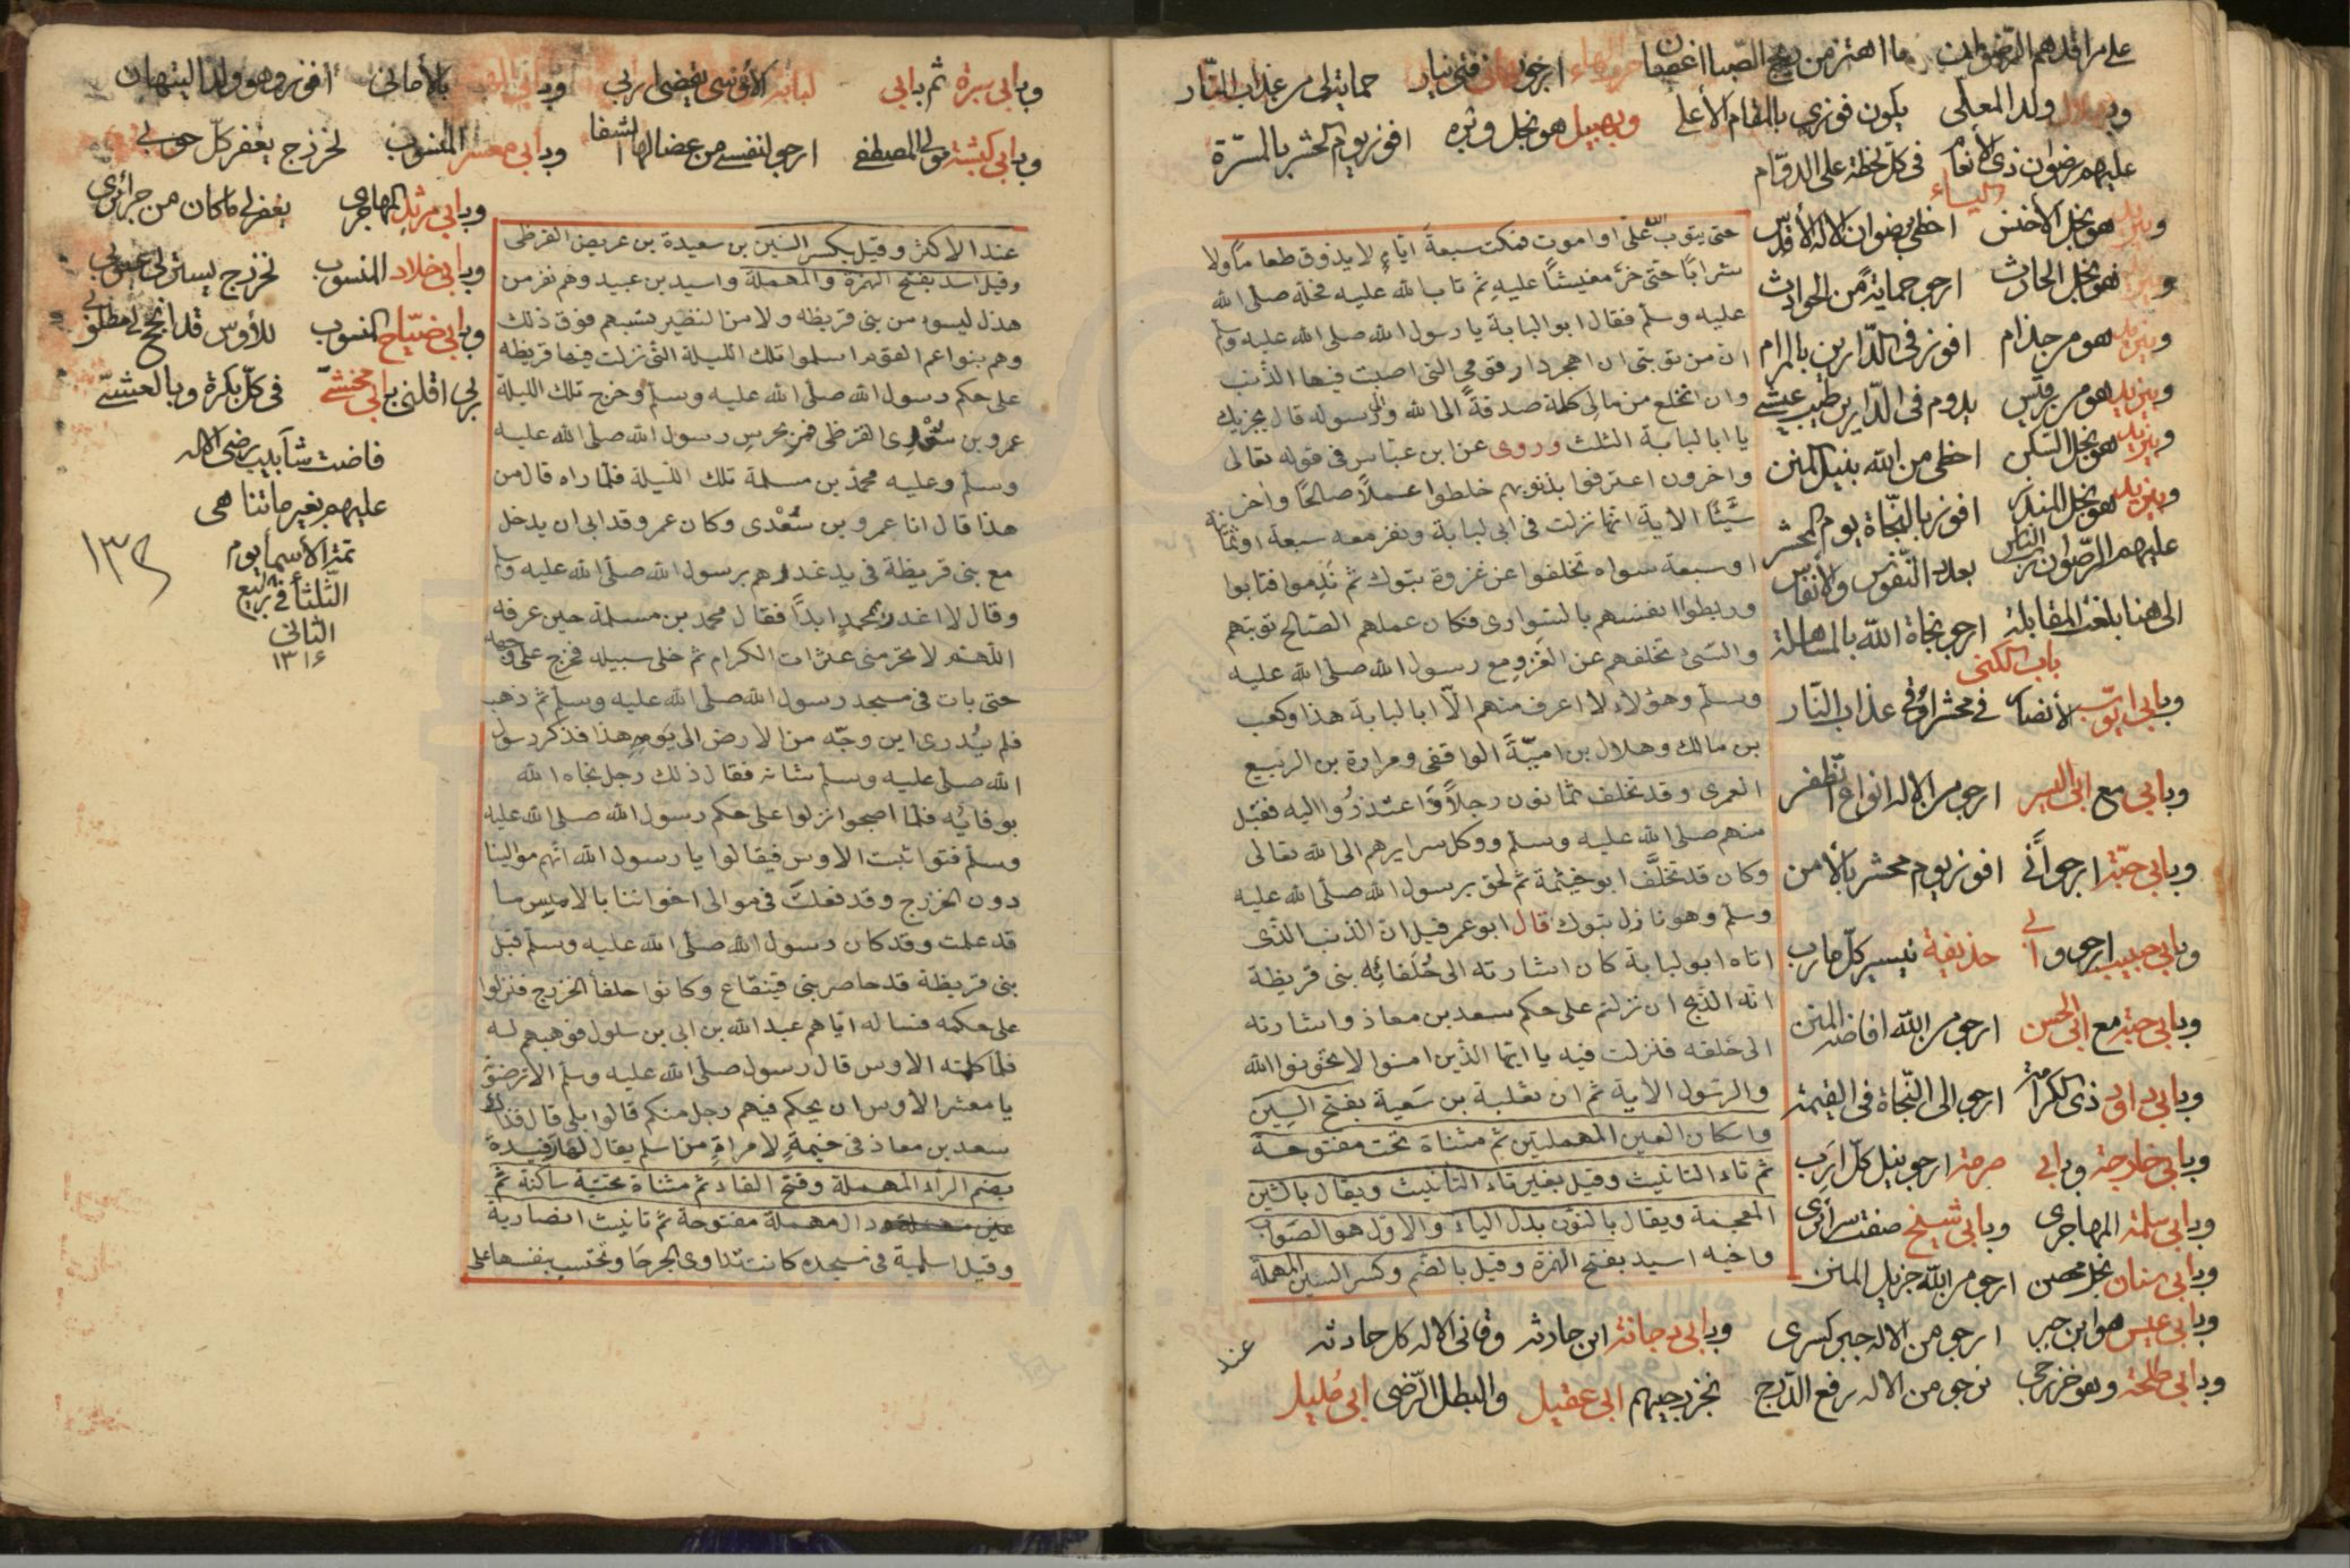 على مراقدهم الرضوان ما اهتز من ريح الصبا اغصان
ارجو فتى نيار حمايتي من عذاب النار
ولد المعلى يكون فوزي بالمقام الأعلى وبهبيل هو نجل وبره افوز يوم الحشر بالمسرة
عليهم رضوان ذي الأنعام في كل لحظة على الدوام
الياء
ويزيد هو نجل الأخنس احظى برضوان الاله الأقدس
هو نجل الحارث ارجو حماية من الحوادث
ويزيد هو من جذام افوز في الدارين بالمرام
ويزيد هو من رقيس يدوم في الدارين طيب عيشي
ويزيد هو نجل السكن احظى من الله بنيل المنن
ويزيد هو نجل المنذر افوز بالنجاة يوم المحشر
عليهم الرضوان رب الناس بعدد النفوس والأنفاس
الى هنا بلغت المقابلة ارجو نجاة الله بالمساهلة
باب الكنى
وبابي ايوب الأنصار في محشر اوقى عذاب النار
وبابي مع ابي اليسر ارجو من الاله انواع الظفر
وبابي حبة ارجو أني افوز يوم محشر بالأمن
وبابي حبيب ارجو وابي حذيفة تيسير كل مارب
وبابي حبة مع ابي الحسن ارجو من الله افاضة المنن
وبابي داود ذي الكرامة ارجو الى النجاة في القيمة
وبابي خارجة وبابي صرمة ارجو نيل كل ارب
وبابي سلمة المهاجري وبابي شيخ صفت سرائري
وبابي سنان نجل محصن ارجو من الله جزيل المنن
وبابي عبس هو ابن جبر ارجو من الاله جبر كسري وبابي دجانة ابن حارثه وقاني الاله كل حادثه
وبابي طلحة وهو خزرجي نرجو من الاله رفع الدرج بخزرجيهم ابي عقيل والبطل الرضي ابي مليل
حتى يتوب الله على او اموت فمكث سبعة ايام لا يذوق طعاما ولا
شرابا حتى خر مغيشا عليه ثم تاب الله عليه فحله صلى الله
عليه وسلم فقال ابو البابة يا رسول الله صلى الله عليه وسلم
ان من توبتي ان اهجر دار قومي التي اصبت فيها الذنب
وان اتخلع من مالي كلمة صدقة الى الله والى رسوله قال يجزيك
يا ابا لبابة الثلث وروى عن ابن عباس في قوله تعالى
واخرون اعترفوا بذنوبهم خلطوا عملا صالحا واخر
سيئا الاية انما نزلت في ابي لبابة ونفر معه سبعة او ثمانية
او سبعة سواه تخلفوا عن غزوة تبوك ثم ندموا فتابوا
وربطوا انفسهم بالسواري فكان عملهم الصالح توبتهم
والسيئ تخلفهم عن الغزو مع رسول الله صلى الله عليه
وسلم وهؤلاء لا اعرف منهم الا ابا لبابة هذا وكعب
بن مالك وهلال بن امية الواقفي ومرارة بن الربيع
العمري وقد تخلف ثمانون رجلا واعتذروا اليه فقبل
منهم صلى الله عليه وسلم ووكل سرايرهم الى الله تعالى
وكان قد تخلف ابو خيثمة ثم لحق برسول الله صلى الله عليه
وسلم وهو نازل تبوك قال ابو عمر قيل ان الذنب الذي
اتاه ابو لبابة كان اشارته الى حلفائه بني قريظة
انه الذبح ان نزلتم على حكم سعد بن معاذ واشارته
الى خلقه فنزلت فيه يا ايها الذين امنوا لا تخونوا الله
والرسول الاية ثم ان ثعلبة بن سعية بفتح السين
واسكان العين المهملتين ثم مثناة تحت مفتوحة
ثم تاء التانيث وقيل بغير تاء التانيث ويقال بالشين
المعجمة ويقال بالنون بدل الياء والاول هو الصواب
واخيه اسيد بفتح الهمزة وقيل بالضم وكسر السين المهملة
عند
وبابي سبرة ثم بابي لبابة الأوسي يقضى اربي بالأماني افوز وهو ولد التيهان
وبابي كبشة مولى المصطفى ارجو لنفسي من عضالها الشفا وبابي معشر المنسوب لخزرج يغفر كل حوبي
وبابي مرثد المهاجري يغفر لي ما كان من جرائري
وبابي خلاد المنسوب لخزرج يستر لي عيوبي
وبابي ضياح المنسوب للأوس قد انجح لي مطلوبي
ربي اقلني بابي مخشي في كل بكرة وبالعشي
فاضت شآبيب رضى الاله
عليهم بغير ما تناهى
تمت الأسما يوم
الثلثا في ربيع
الثاني
١٣١٤
عند الاكثر وقيل بكسر السين بن سعيدة بن عريض القرظي
وقيل اسد بفتح الهمزة والمهملة واسيد بن عبيد وهم نفر من
هذل ليسوا من بني قريظه ولا من النظير نسبهم فوق ذلك
وهم بنوا عم القوم اسلموا تلك الليلة التي نزلت فيها قريظه
على حكم رسول الله صلى الله عليه وسلم وخرج تلك الليلة
عمرو بن سعدى القرظي فمر بحرس رسول الله صلى الله عليه
وسلم وعليه محمد بن مسلمة تلك الليلة فلما راه قال من
هذا قال انا عمرو بن سعدى وكان عمرو قد ابى ان يدخل
مع بني قريظة في يد غدرهم برسول الله صلى الله عليه وسلم
وقال لا اغدر بمحمد ابدا فقال محمد بن مسلمة حين عرفه
اللهم لا تحرمني عثرات الكرام ثم خلى سبيله فخرج على وجهه
حتى بات في مسجد رسول الله صلى الله عليه وسلم ثم ذهب
فلم يدرى اين وجه من الارض الى يومه هذا فذكر رسول
الله صلى عليه وسلم شانه فقال ذلك رجل نجاه الله
بوفائه فلما اصبحوا نزلوا على حكم رسول الله صلى الله عليه
وسلم فتواثبت الاوس فيقالوا يا رسول الله انهم موالينا
دون الخزرج وقد فعلت في موالى اخواننا بالامس ما
قد علمت وقد كان رسول الله صلى الله عليه وسلم قبل
بني قريظة قد حاصر بني قينقاع وكانوا حلفأ الخزرج فنزلوا
على حكمه فساله اياهم عبد الله بن ابي بن سلول فوهبهم له
فلما كلمته الاوس قال رسول صلى الله عليه وسلم الا ترضون
يا معشر الاوس ان يحكم فيهم رجل منكم قالوا بلى قال فذاك
سعد بن معاذ في خيمة لامراة من اسلم يقال لها رفيدة
بضم الراء المهملة وفتح الفاء ثم مثناة تحتية ساكنة ثم
دال مهملة مفتوحة ثم تانيث انصارية
وقيل اسلمية في مسجده كانت تداوى الجرحا وتحتسب بنفسها على